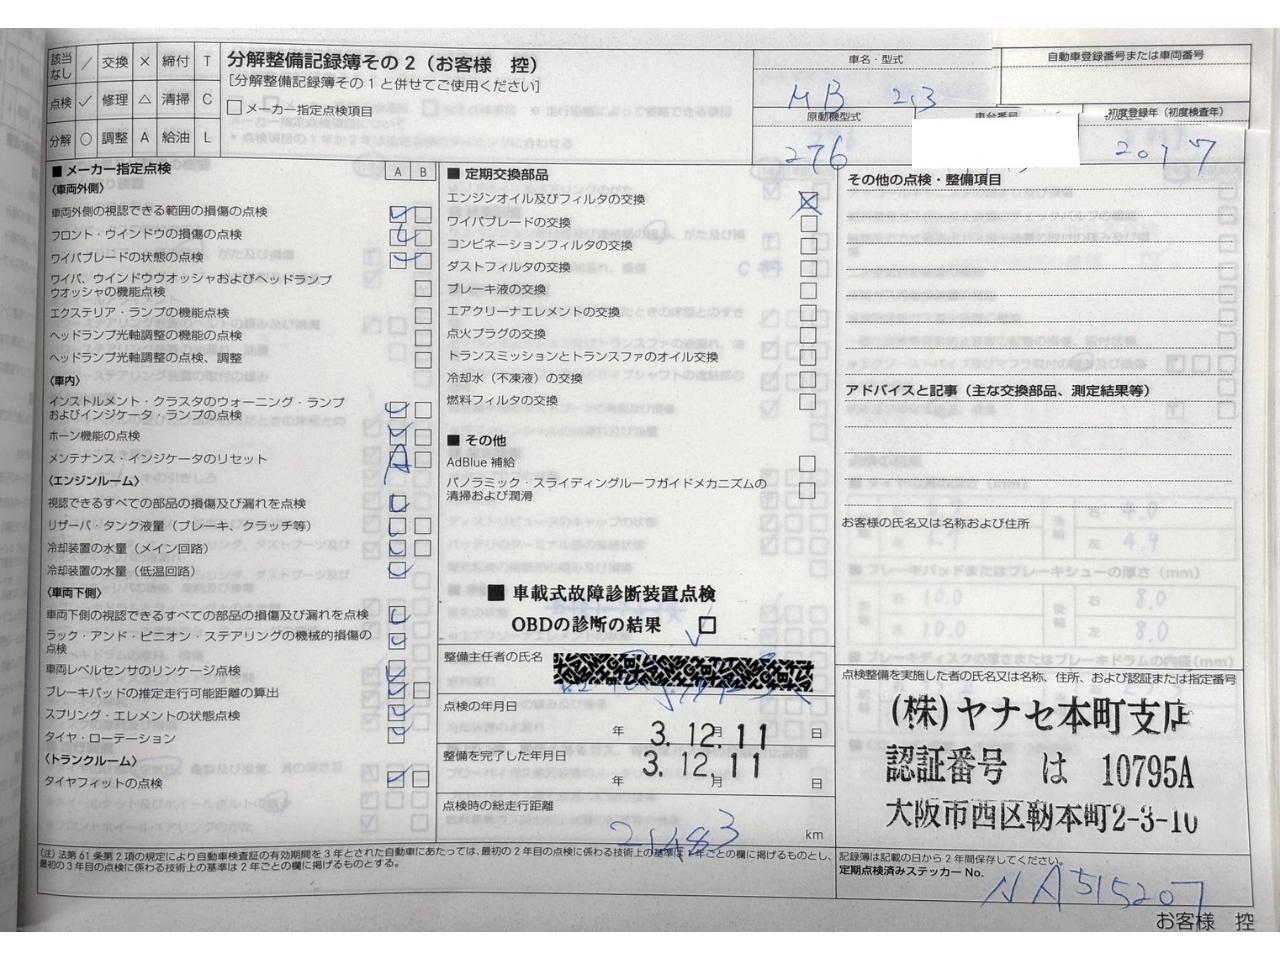 該当なし / 交換 × 締付 T
点検 ✓ 修理 △ 清掃 C
分解 ○ 調整 A 給油 L
分解整備記録簿その2（お客様 控）
［分解整備記録簿その1と併せてご使用ください］
□メーカー指定点検項目
車名・型式
MB 213
自動車登録番号または車両番号
原動機型式
276
車台番号
初度登録年（初度検査年）
2017
■メーカー指定点検 A B
〈車両外側〉
車両外側の視認できる範囲の損傷の点検
フロント・ウインドウの損傷の点検
ワイパブレードの状態の点検
ワイパ、ウインドウウオッシャおよびヘッドランプ
ウオッシャの機能点検
エクステリア・ランプの機能点検
ヘッドランプ光軸調整の機能の点検
ヘッドランプ光軸調整の点検、調整
〈車内〉
インストルメント・クラスタのウォーニング・ランプ
およびインジケータ・ランプの点検
ホーン機能の点検
メンテナンス・インジケータのリセット A
〈エンジンルーム〉
視認できるすべての部品の損傷及び漏れを点検
リザーバ・タンク液量（ブレーキ、クラッチ等）
冷却装置の水量（メイン回路）
冷却装置の水量（低温回路）
〈車両下側〉
車両下側の視認できるすべての部品の損傷及び漏れを点検
ラック・アンド・ピニオン・ステアリングの機械的損傷の
点検
車両レベルセンサのリンケージ点検
ブレーキパッドの推定走行可能距離の算出
スプリング・エレメントの状態点検
タイヤ・ローテーション
〈トランクルーム〉
タイヤフィットの点検
■定期交換部品
エンジンオイル及びフィルタの交換
ワイパブレードの交換
コンビネーションフィルタの交換
ダストフィルタの交換
ブレーキ液の交換
エアクリーナエレメントの交換
点火プラグの交換
トランスミッションとトランスファのオイル交換
冷却水（不凍液）の交換
燃料フィルタの交換
■その他
AdBlue 補給
パノラミック・スライディングルーフガイドメカニズムの
清掃および潤滑
■ 車載式故障診断装置点検
OBDの診断の結果 □
整備主任者の氏名
点検の年月日
3年12月11日
整備を完了した年月日
3年12月11日
点検時の総走行距離
21483 km
その他の点検・整備項目
アドバイスと記事（主な交換部品、測定結果等）
お客様の氏名又は名称および住所
点検整備を実施した者の氏名又は名称、住所、および認証または指定番号
(株)ヤナセ本町支店
認証番号 は 10795A
大阪市西区靭本町2-3-10
（注）法第61条第2項の規定により自動車検査証の有効期間を3年とされた自動車にあたっては、最初の2年目の点検に係わる技術上の基準は1年ごとの欄に掲げるものとし、
最初の3年目の点検に係わる技術上の基準は2年ごとの欄に掲げるものとする。
記録簿は記載の日から2年間保存してください。
定期点検済みステッカー No.
NA515207
お客様 控